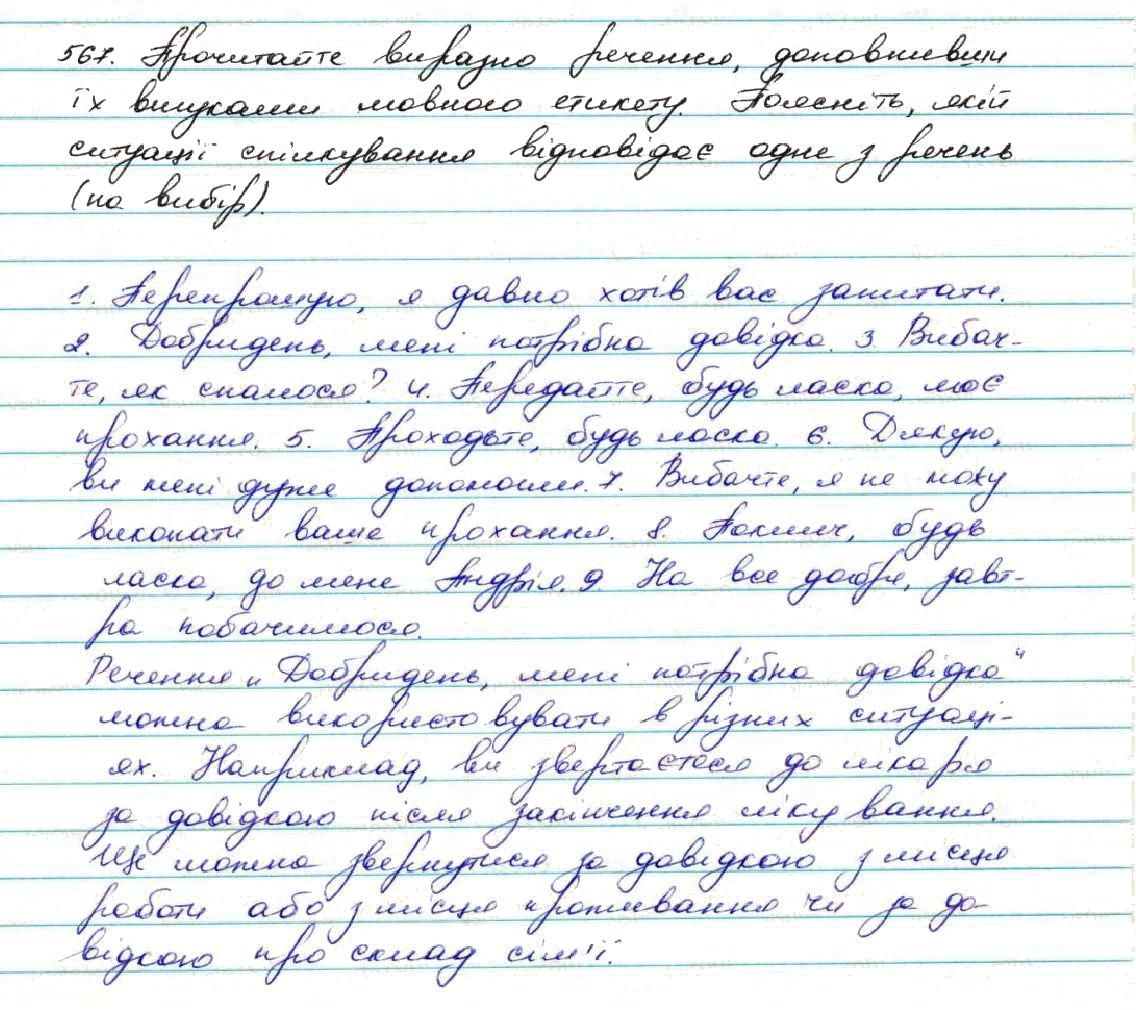 567. Прочитайте виразно речення, доповнивши
їх вигуками мовного етикету. Поясніть, якій
ситуації спілкування відповідає одне з речень
(на вибір).
1. Перепрошую, я давно хотів вас запитати.
2. Добридень, мені потрібна довідка. 3. Вибач-
те, як спалося? 4. Передайте, будь ласка, моє
прохання. 5. Проходьте, будь ласка. 6. Дякую,
ви мені дуже допомогли. 7. Вибачте, я не можу
виконати ваше прохання. 8. Поклич, будь
ласка, до мене Андрія. 9. На все добре, завт-
ра побачимося.
Речення „Добридень, мені потрібна довідка"
можна використовувати в різних ситуаці-
ях. Наприклад, ви звертаєтеся до лікаря
за довідкою після закінчення лікування.
Ще можна звернутися за довідкою з місця
роботи або з місця проживання чи за до-
відкою про склад сім'ї.